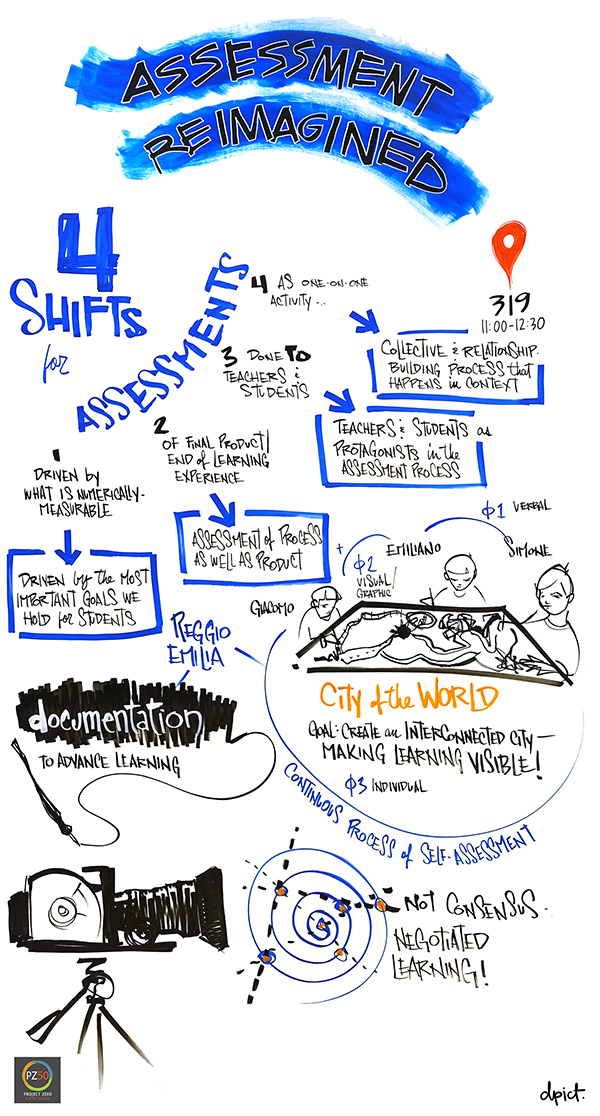 ASSESSMENT
REIMAGINED
4
SHIFTS
for
ASSESSMENTS
319
11:00-12:30
1
DRIVEN by
WHAT IS NUMERICALLY-
MEASURABLE
DRIVEN by the MOST
IMPORTANT GOALS WE
HOLD for STUDENTS
2
OF FINAL PRODUCT/
END of LEARNING
EXPERIENCE
ASSESSMENT of PROCESS
AS WELL AS PRODUCT
3 DONE TO
TEACHERS &
STUDENTS
TEACHERS & STUDENTS as
PROTAGONISTS in the
ASSESSMENT PROCESS
4 AS ONE-ON-ONE
ACTIVITY...
COLLECTIVE & RELATIONSHIP-
BUILDING PROCESS that
HAPPENS in CONTEXT
REGGIO
EMILIA
documentation
TO ADVANCE LEARNING
Φ1 VERBAL
+ Φ2
VISUAL/
GRAPHIC
GIACOMO
EMILIANO
SIMONE
City of the WORLD
GOAL: CREATE an INTERCONNECTED CITY—
MAKING LEARNING VISIBLE!
Φ3 INDIVIDUAL
CONTINUOUS PROCESS of SELF-ASSESSMENT
NOT CONSENSUS-
NEGOTIATED
LEARNING!
PZ50
PROJECT ZERO
dpict.